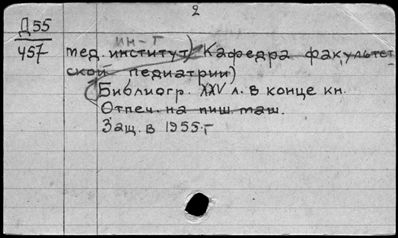 2
Д55
457
ин-т
мед. институт) Кафедра факультет
ской педиатрии)
(Библиогр. XXV л. в конце кн.
Отпеч. на пиш. маш.
Защ. в 1955 г